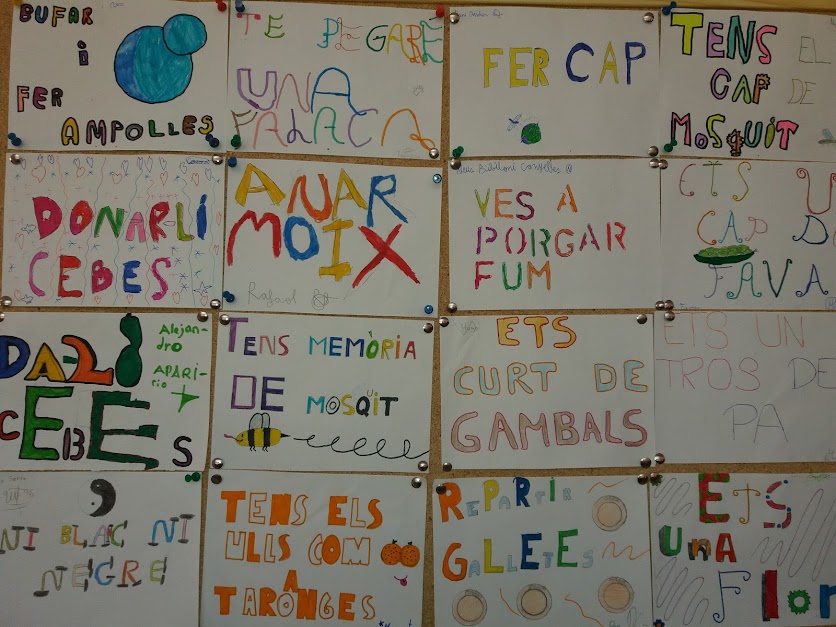 BUFAR
i
FER
AMPOLLES
TE PEGARÉ
UNA
FALACA
FER CAP
TENS EL
CAP DE
MOSQUIT
DONARLÍ
CEBES
ANAR
MOIX
Rafael
VES A
PORGAR
FUM
ETS U
CAP D
FAVA
DA-LI
CEBES
Alejan-
dro
APARI-
rio
TENS MEMÒRIA
DE MOSQUIT
ETS
CURT DE
GAMBALS
ETS UN
TROS DE
PA
NI BLANC NI
NEGRE
TENS ELS
ULLS COM
A
TARONGES
REPARTIR
GALLETES
ETS
UNA
Flor